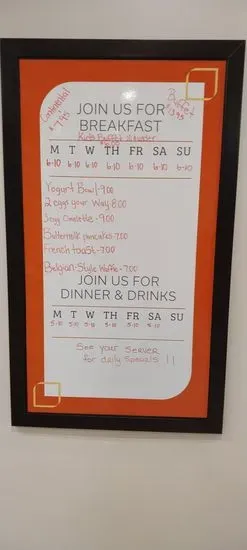 Continental
$7.95
Buffet
$13.95
JOIN US FOR
BREAKFAST
Kids Buffet 10 &under
M T W TH FR SA SU
6-10 6-10 6-10 6-10 6-10 6-10 6-10
Yogurt Bowl-9.00
2 eggs your Way 8.00
3egg Omelette-9.00
Buttermilk pancakes-7.00
French toast-7.00
Belgian-Style Waffle-7.00
JOIN US FOR
DINNER & DRINKS
M T W TH FR SA SU
5-10 5-10 5-10 5-10 5-10 5-10
See your SERVER
for daily Specials !!